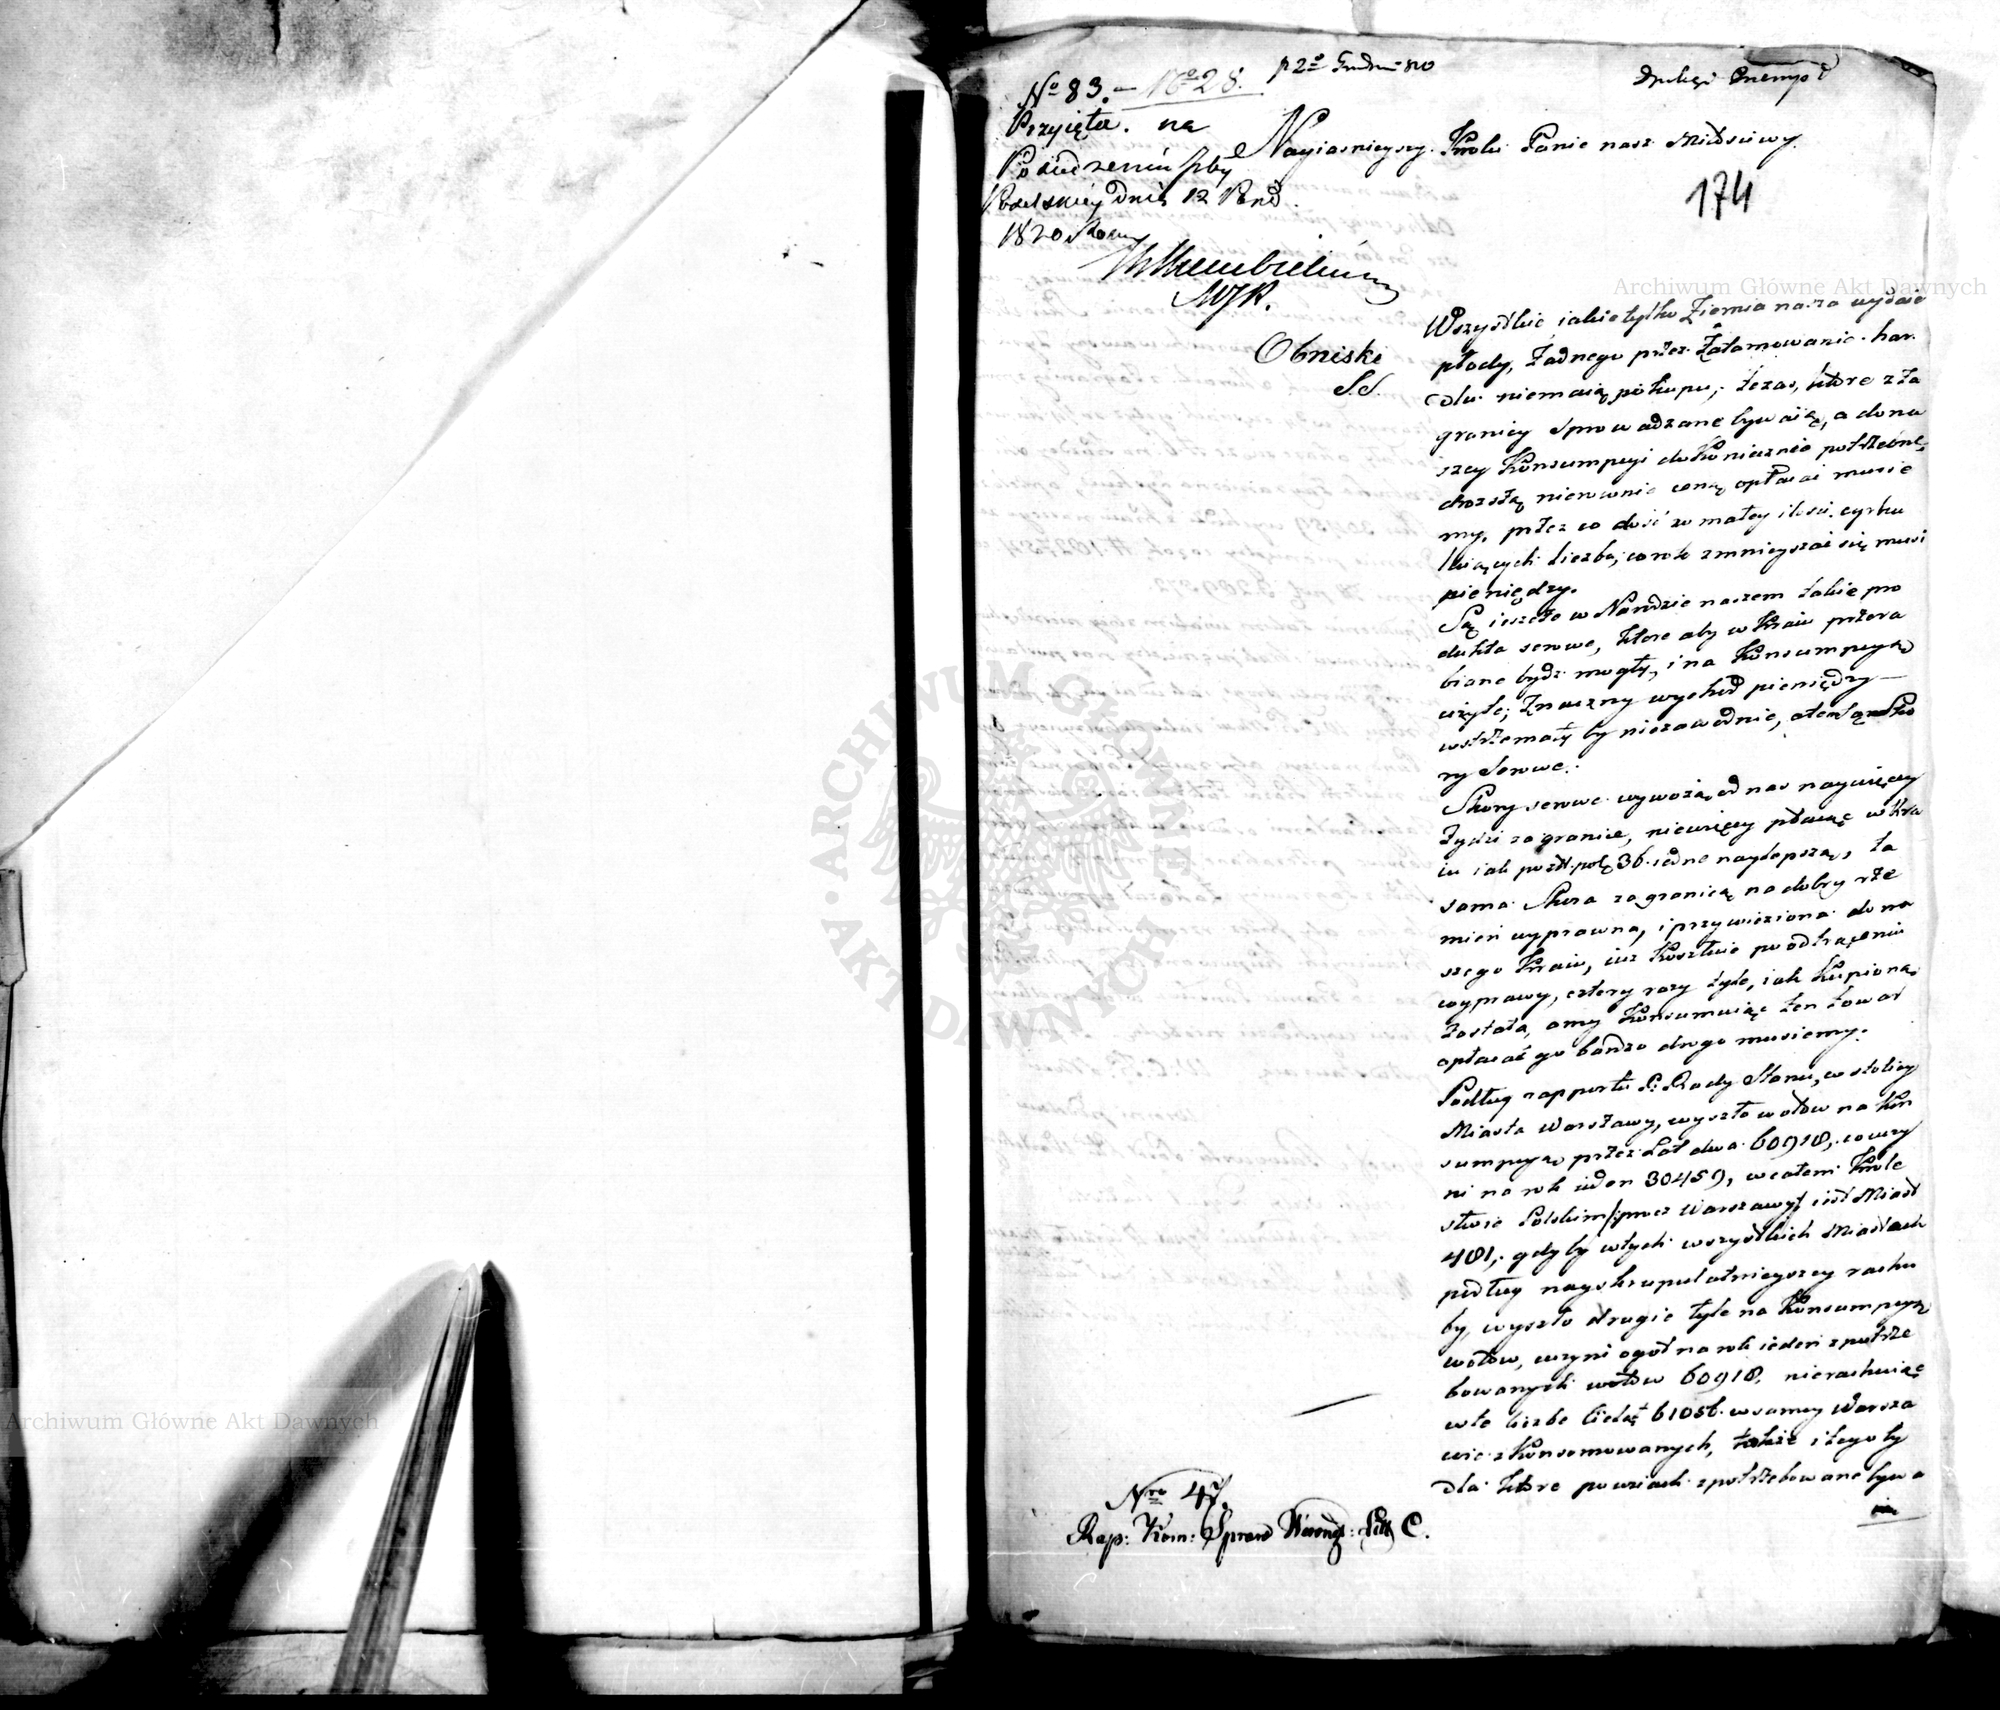 № 83. — № 28.
Przyięta na
Posiedzeniu Izby
Poselskiéy dnia 12 Paźd.
1820 Roku
MJP.
Obniski
S.S.
174
Nayiasnieyszy Królu Panie nasz Miłosciwy.
Archiwum Główne Akt Dawnych
Wszystkie iakie tylko Ziemia nasza wydaie
płody, żadnego przez Zatamowanie han
dlu niemaią pokupu; te zas, które z za
granicy sprowadzane bywaią, a do na
szey Konsumpcyi do Koniecznie potrzebne,
drozszą nierównie ceną opłacać musie
my, przez co dość w małey ilosci cyrku
luiących liczba, co rok zmnieyszać się musi
pieniędzy.
Są ieszcze w Narodzie naszem takie pro
dukta surowe, które aby w Kraiu przera
biane bydz mogły, i na Konsumpcyą
użyte; znaczny wychod pieniędzy
wstrzemały by niezawodnie, a tem są Sko
ry Surowe.
Skory surowe wywożą od nas naywięcey
Żydzi za granicę, niewięcey płacąc w Kra
iu iak po złł. pol. 36. iedne naylepszą, ta
sama Skora za granicą na dobry rze
mień wyprawna, i przywieziona do na
szego Kraiu, iuz Kosztuie po odtrąceniu
wyprawy, cztery razy tyle, iak Kupioną
została, a my Konsumuiąc ten towar
opłacać go bardzo drogo musiemy.
Podług rapportu R. Rady Stanu, w stolicy
Miasta Warszawy, wyszło wołów na Kon
sumpcyą przez Lat dwa 60918, co czy
ni na rok ieden 30459, w całem Króle
stwie Polskim /: procz Warszawy :/ iest Miast
481; gdyby w tych wszystkich Miastach
podług nayskrupulatnieyszey rachu
by, wyszło drugie tyle na Konsumpcyą
wołów, uczyni ogół na rok ieden zpotrze
bowanych wołów 60918, nierachuiąc
w te liczbe Cieląt 61056. w samey Warsza
wie zKonsumowanych, także i tego by
dła które po wsiach zpotrzebowane bywa
ia
Nro 47.
Rap: Kom: Spraw Wewnęt: Litt C.
ARCHIWUM GŁÓWNE AKT DAWNYCH
Archiwum Główne Akt Dawnych